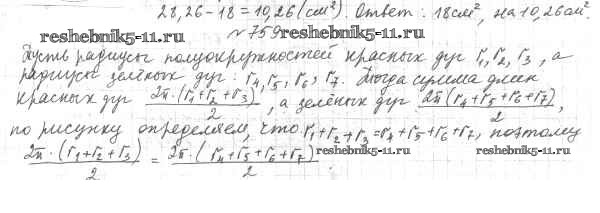 28,26-18=10,26(см²). Ответ: 18см², на 10,26см².
reshebnik5-11.ru
№759 reshebnik5-11.ru
Пусть радиусы полуокружностей красных дуг r₁, r₂, r₃, а
радиусы зелёных дуг: r₄, r₅, r₆, r₇. Тогда сумма длин
красных дуг 2π·(r₁+r₂+r₃)/2, а зелёных дуг 2π(r₄+r₅+r₆+r₇)/2,
reshebnik5-11.ru
по рисунку определяем, что r₁+r₂+r₃=r₄+r₅+r₆+r₇, поэтому
2π·(r₁+r₂+r₃)/2 = 2π·(r₄+r₅+r₆+r₇)/2
reshebnik5-11.ru reshebnik5-11.ru